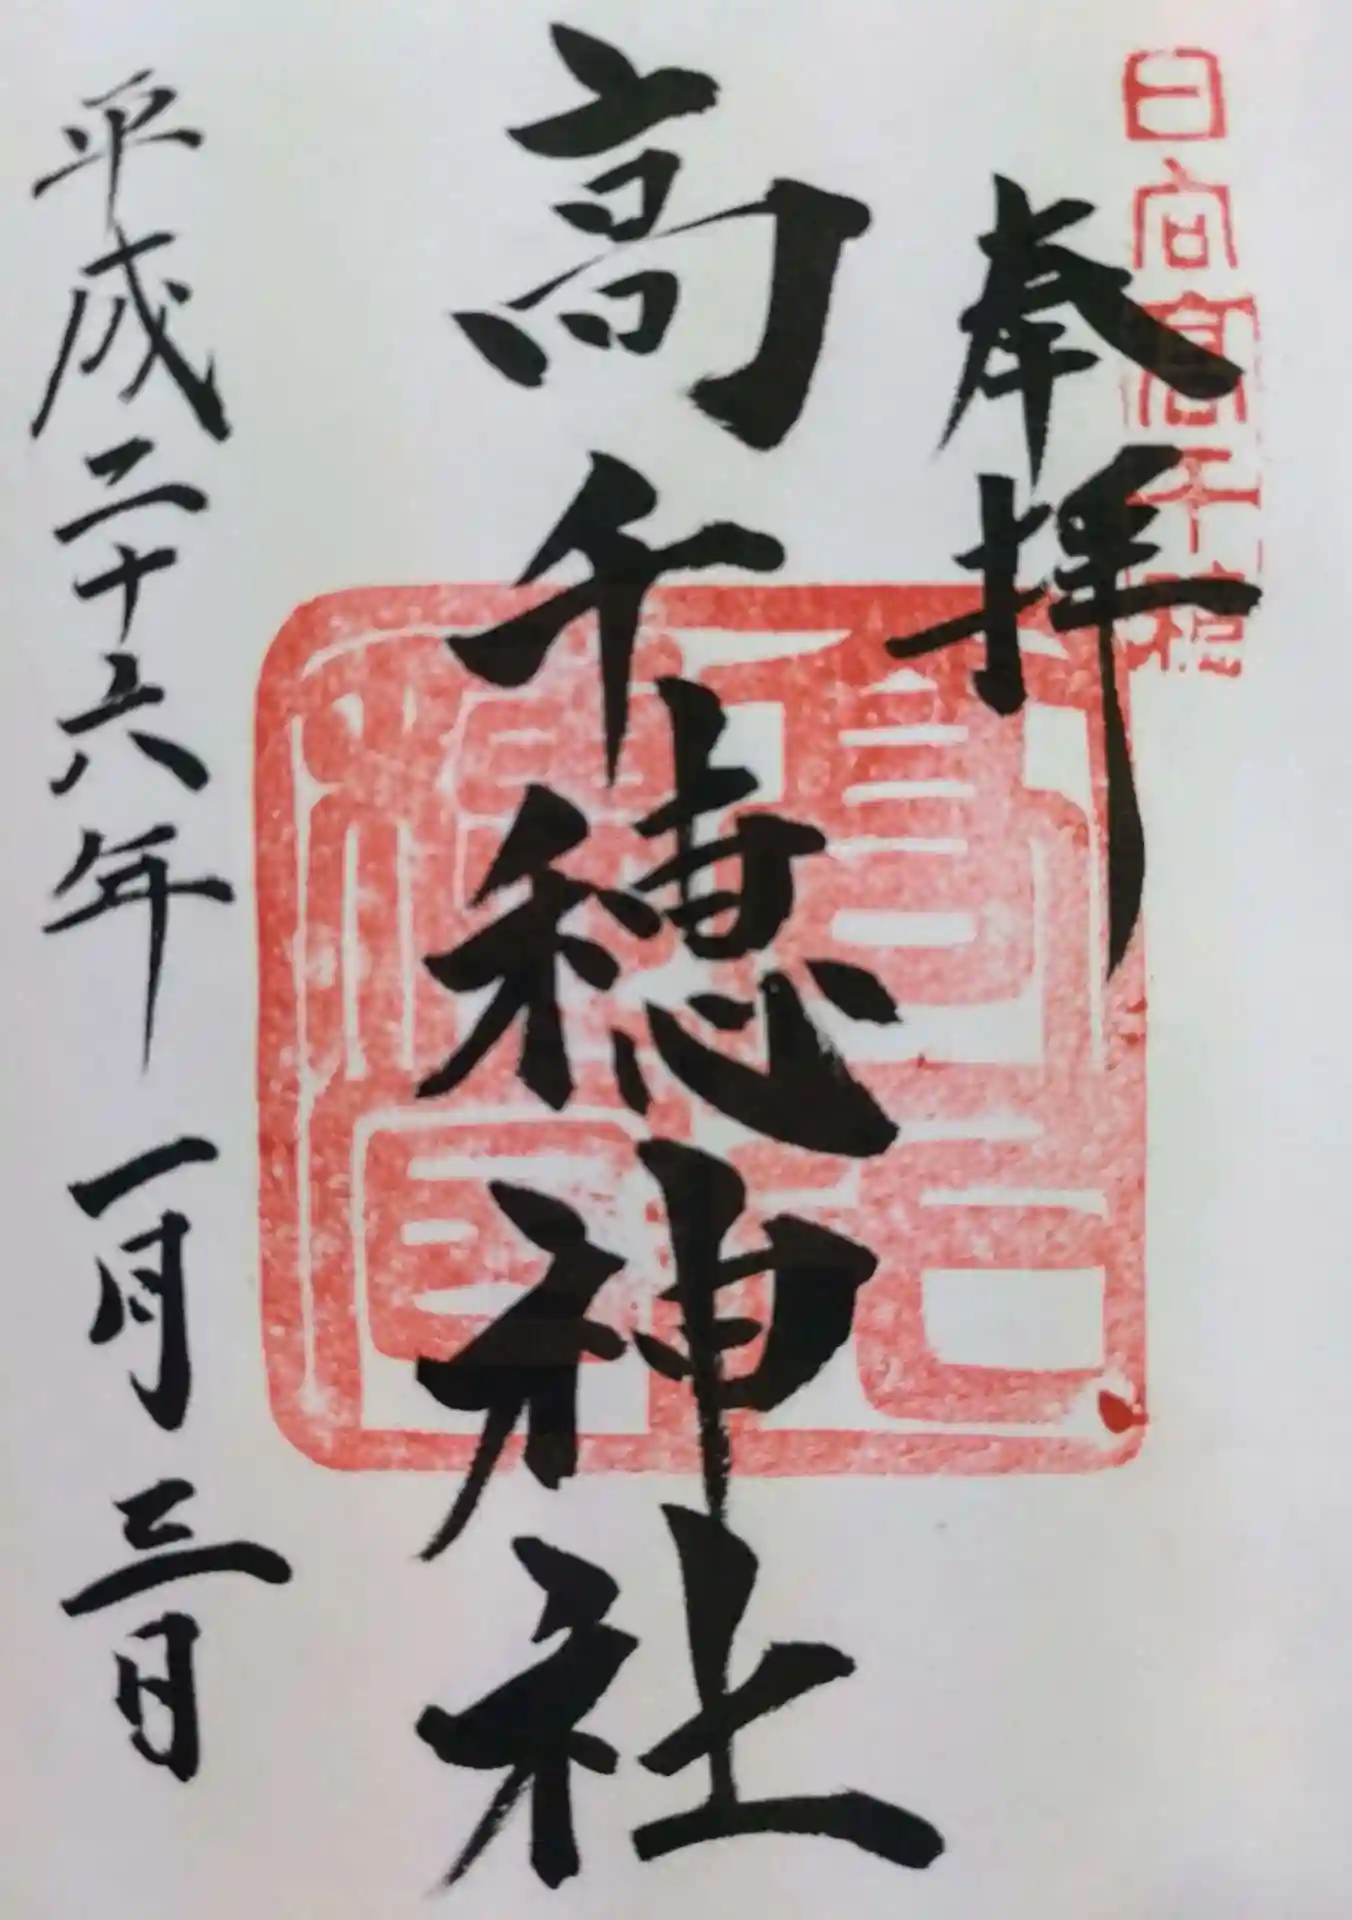 日向高千穂
奉拝
高千穂神社
平成二十六年一月三日